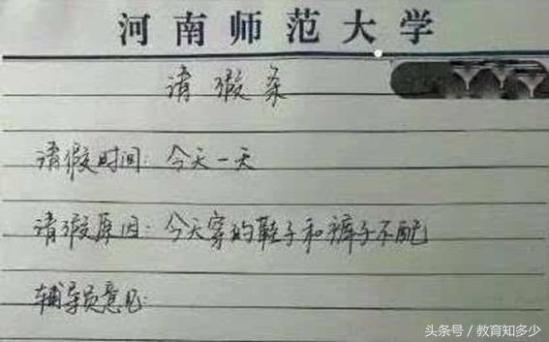 河南师范大学
请假条
请假时间：今天一天
请假原因：今天穿的鞋子和裤子不配
辅导员意见：
头条号／教育知多少